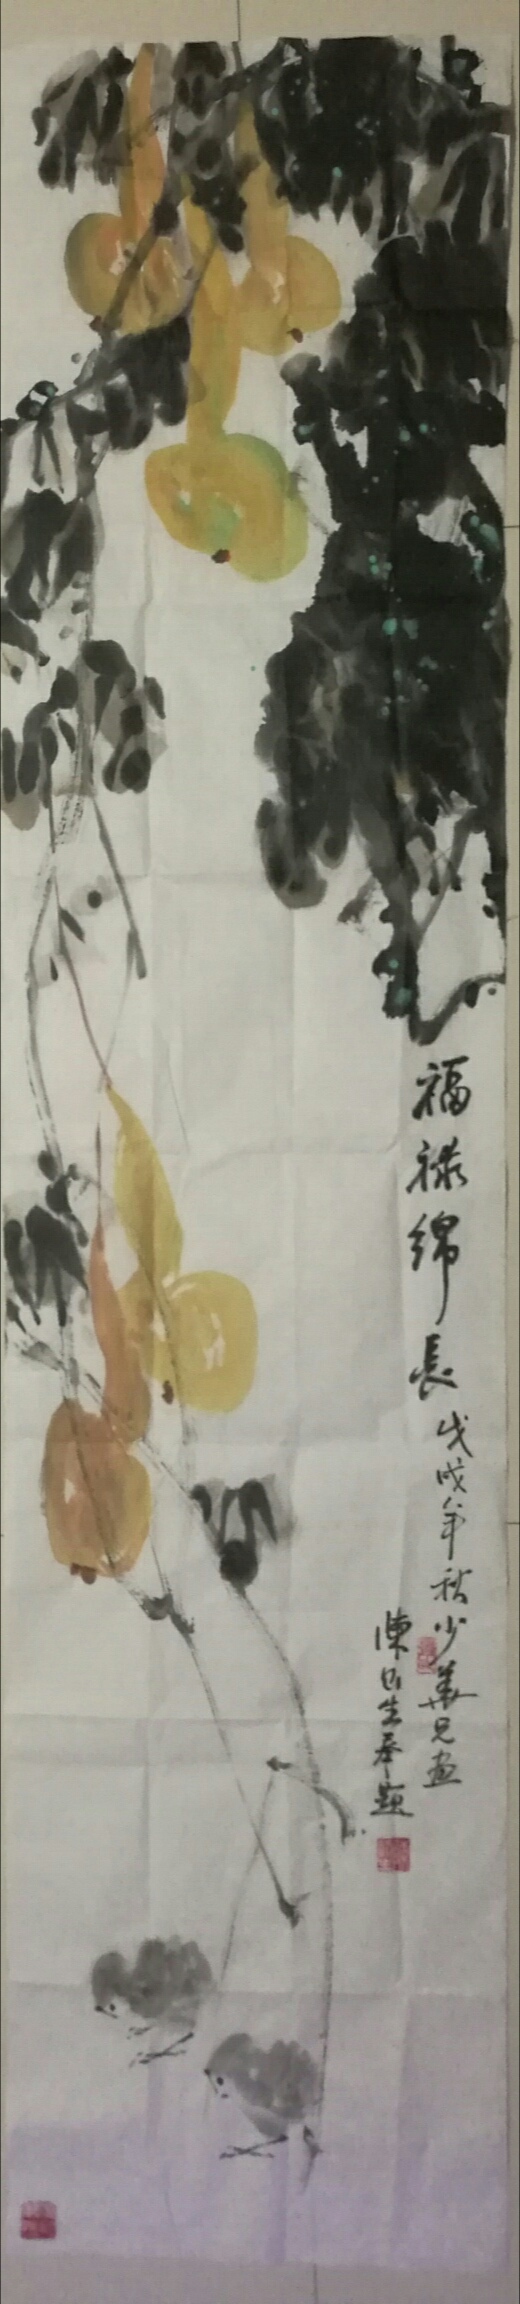 福禄绵長
戊戌年秋少華兄画
陳  生奉題